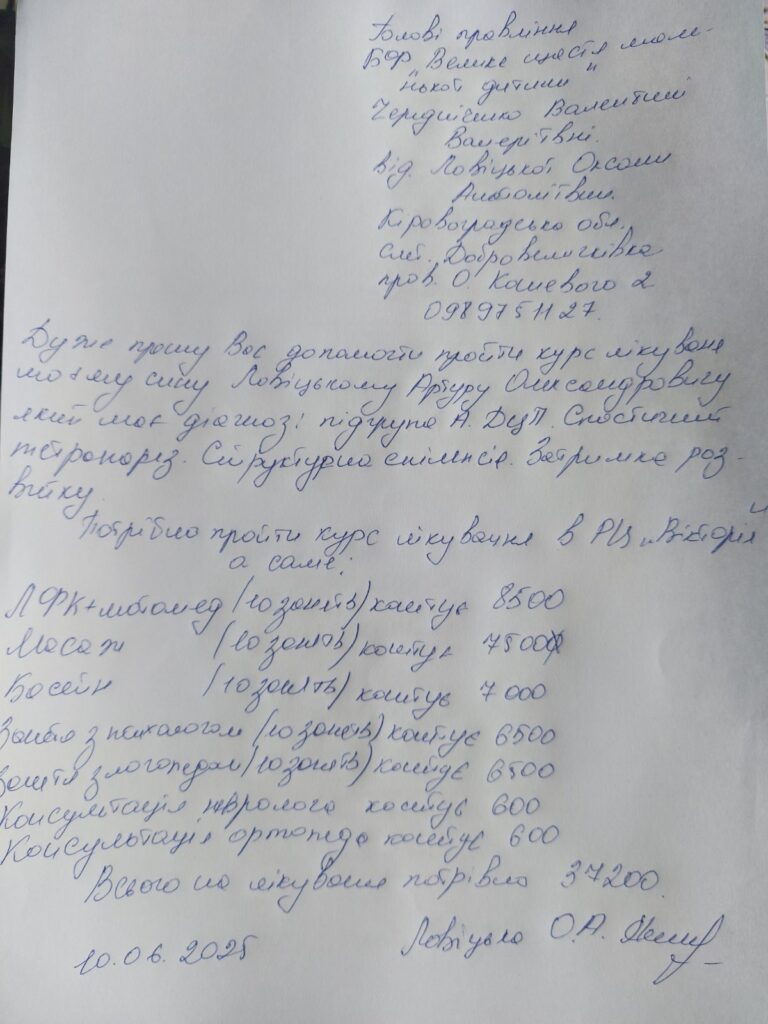 Голові правління
БФ Велике щастя мале-
"нької дитини"
Чередніченко Валентині
Валеріївні.
від. Ловіцької Оксани
Анатоліївни.
Кіровоградська обл.
смт. Добровеличківка
пров. О. Каневого 2
0989751127.
Дуже прошу Вас допомогти пройти курс лікування
моєму сину Ловіцькому Артуру Олександровичу
який має діагноз: підгрупа А. ДЦП. Спастичний
тетрапарез. Структурна епілепсія. Затримка роз-
витку.
Потрібно пройти курс лікування в РЦ „Вікторія"
а саме:
ЛФК+мотомед (10 занять) коштує 8500
Масаж (10 занять) коштує 7500
Басейн (10 занять) коштує 7000
Заняття з психологом (10 занять) коштує 6500
Заняття з логопедом (10 занять) коштує 6500
Консультація невролога коштує 600
Консультація ортопеда коштує 600
Всього на лікування потрібно 37200.
10.06.2025 Ловіцька О.А.